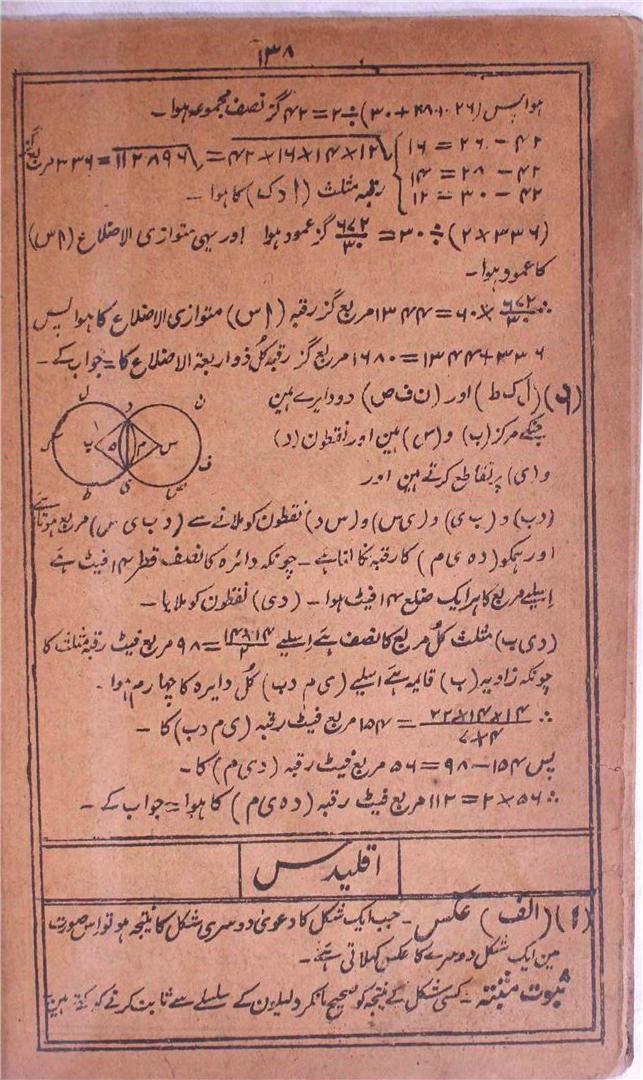 ۱۳۸
ہوا پس (۲۶+۲۸+۳۰)÷۲=۴۲ گز نصف مجموعہ ہوا۔
۴۲−۲۶=۱۶
۴۲−۲۸=۱۴
۴۲−۳۰=۱۲
√۴۲×۱۶×۱۴×۱۲=√۱۱۲۸۹۶=۳۳۶ مربع گز
رقبہ مثلث (ا د ک) کا ہوا۔
(۲×۳۳۶)÷۳۰=۶۷۲/۳۰ گز عمود ہوا اور یہی متوازی الاضلاع (ا س)
کا عمود ہوا۔
∴ ۶۷۲/۳۰×۶۰=۱۳۴۴ مربع گز رقبہ (ا س) متوازی الاضلاع کا ہوا پس
۱۳۴۴+۳۳۶=۱۶۸۰ مربع گز رقبہ کُل ذو اربعۃ الاضلاع کا=جواب کے۔
(۹) (ل ک ط) اور (ن ف ص) دو دایرے ہین
جنکے مرکز (ب) و (س) ہین اور نقطون (د)
و (ی) پر تقاطع کرتے ہین اور
ل د ن ک ب ا ہ م س ف ط ی ص
(د ب) و (ب ی) و (ی س) و (س د) نقطون کو ملانے سے (د ب ی س) مربع ہوتا ہے
اور ہمکو (د ہ ی م) کا رقبہ نکالنا ہے۔ چونکہ دائرہ کا نصف قطر ۱۴ فیٹ ہے
اسلیے مربع کا ہر ایک ضلع ۱۴ فیٹ ہوا۔ (د ی) نقطون کو ملایا۔
(د ی ب) مثلث کُل مربع کا نصف ہے اسلیے ۱۴×۱۴/۲=۹۸ مربع فیٹ رقبہ مثلث کا
چونکہ زاویہ (ب) قایمہ ہے اسلیے (ی م د ب) کُل دایرہ کا چہارم ہوا۔
∴ ۲۲×۱۴×۱۴/۷×۴=۱۵۴ مربع فیٹ رقبہ (ی م د ب) کا۔
پس ۱۵۴−۹۸=۵۶ مربع فیٹ رقبہ (د ی م) کا۔
∴ ۵۶×۲=۱۱۲ مربع فیٹ رقبہ (د ہ ی م) کا ہوا=جواب کے۔
اقلیدس
(۱) (الف) عکس۔ جب ایک شکل کا دعویٰ دوسری شکل کا نتیجہ ہو تو اس صورت
مین ایک شکل دوسرے کا عکس کہلاتی ہے۔
ثبوت مثبتہ۔ کسی شکل کے نتیجہ کو صحیح مانکر دلیلون کے سلسلے سے ثابت کرنے کو کہتے ہین